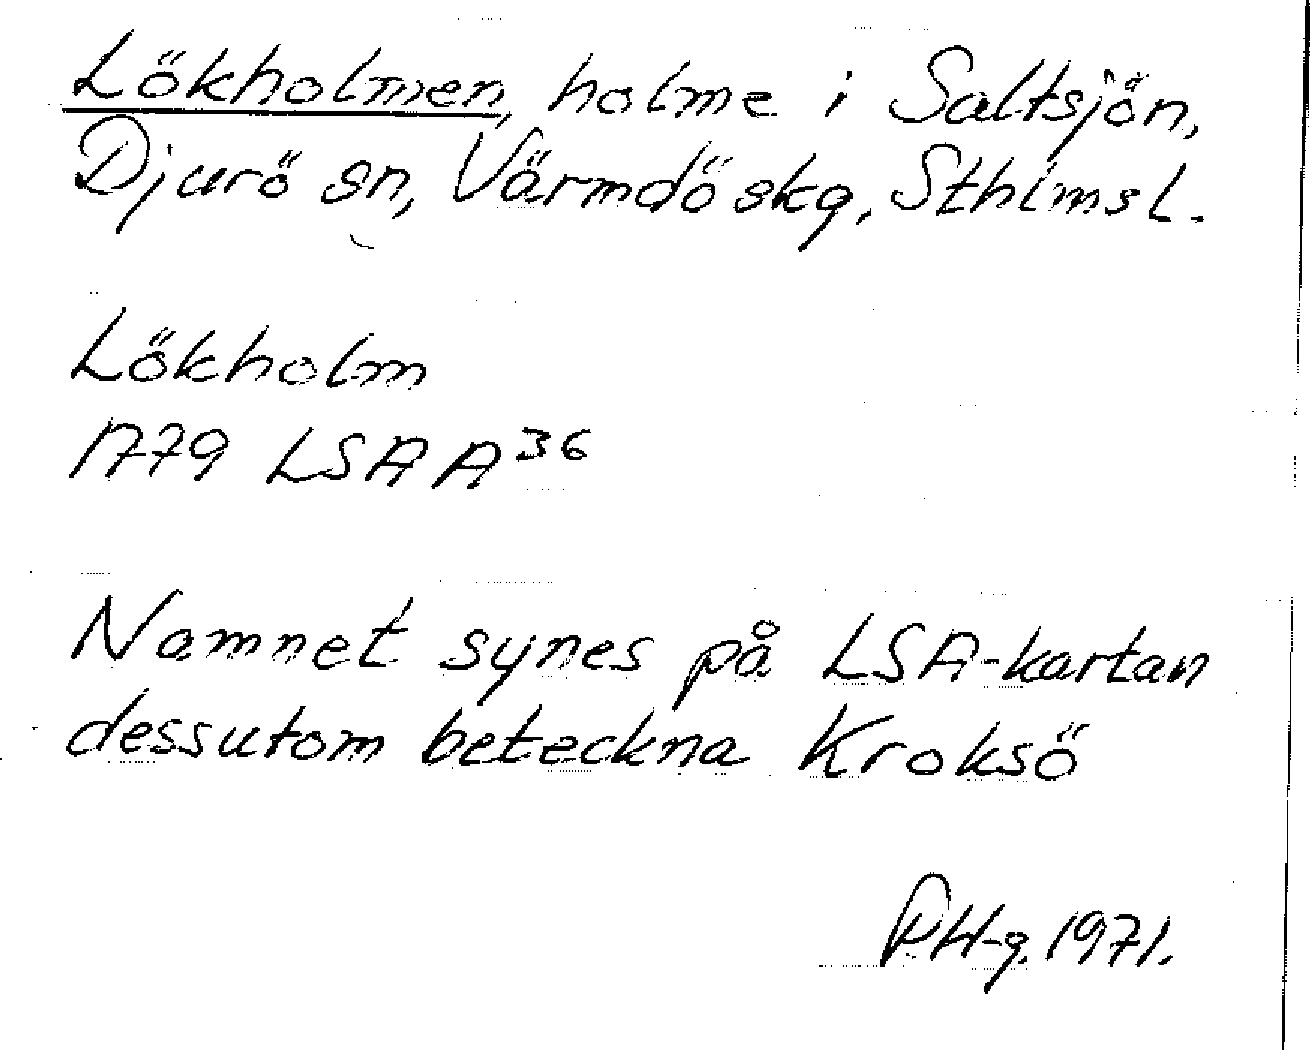 Lökholmen, holme i Saltsjön,
Djurö sn, Värmdö skg, Sthlmsl.
Lökholm
1779 LSA A 36
Namnet synes på LSA-kartan
dessutom beteckna Kroksö
PH-g. 1971.